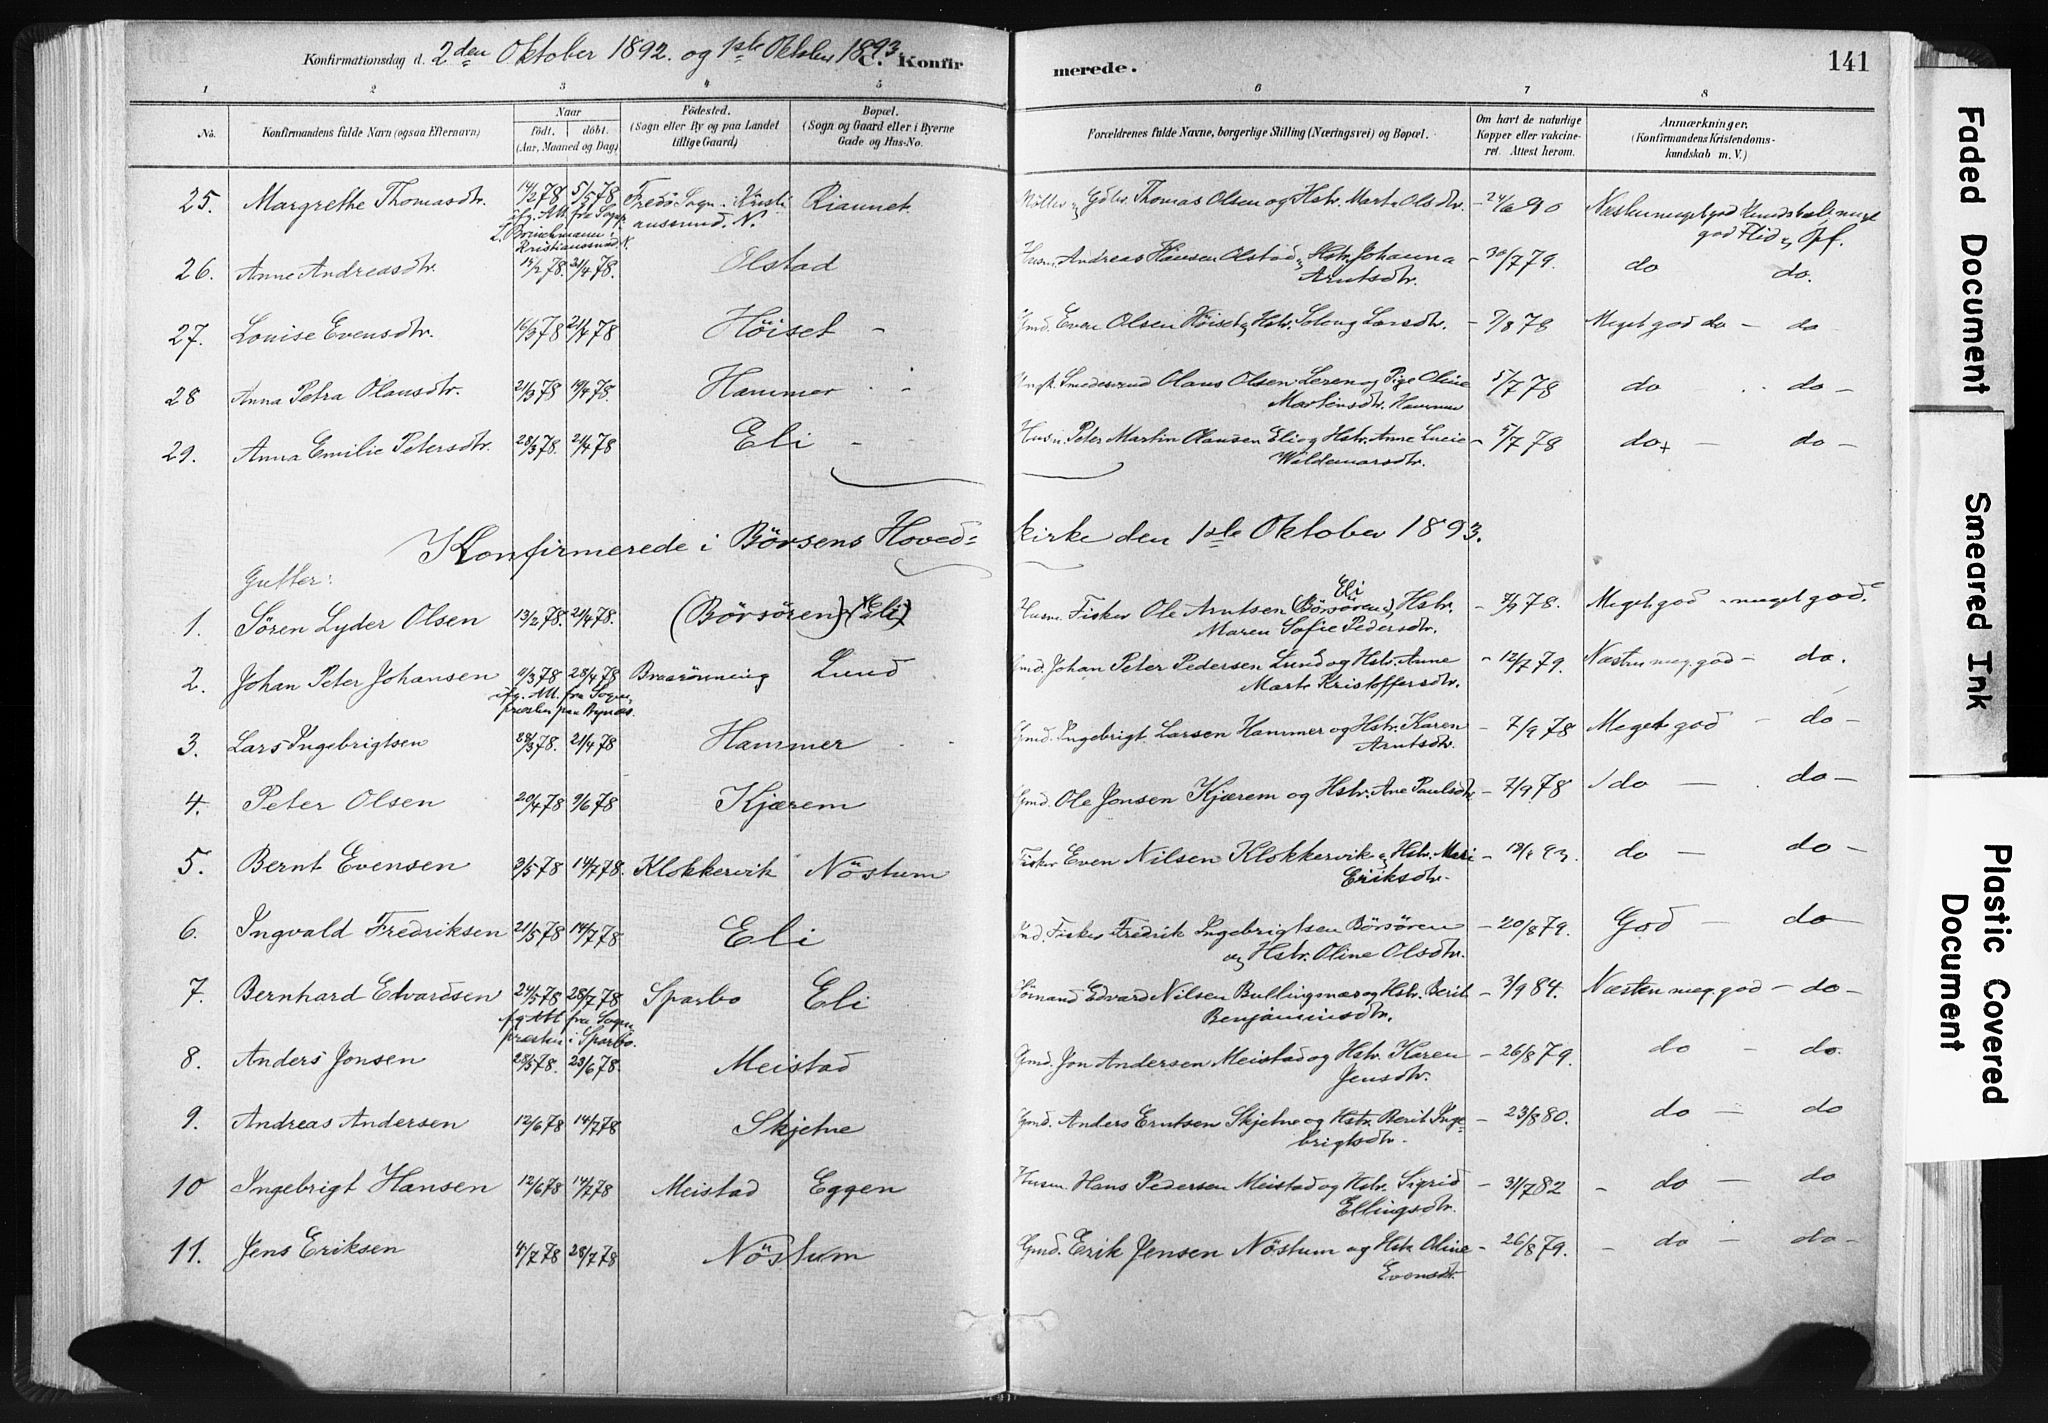 Konfirmationsdag d. 2den Oktober 1892. og 1ste Oktober 1893. C. Konfir
merede.
141
1 2 3 4 5 6 7 8
No.
Konfirmandens fulde Navn (ogsaa Efternavn)
Naar
födt. döbt.
(Aar, Maaned og Dag)
Födested.
(Sogn eller By og paa Landet
tillige Gaard)
Bopæl.
(Sogn og Gaard eller i Byerne
Gade og Hus-No.
Forældrenes fulde Navne, borgerlige Stilling (Næringsvei) og Bopæl.
Om havt de naturlige
Kopper eller vakcine-
ret. Attest herom.
Anmærkninger.
(Konfirmandens Kristendoms-
kundskab m. V.)
25. Margrethe Thomasdtr. 14/2 78 5/5 78 Fredö Sogn. Kristi Riaunet Thomas Olsen og Hstr. Marta Olsdtr. - 24/6 90 Næsten meget god Kundskab meget
ifg. Att. fra Sogn. anssund. N. god Flid og Opf.
L. Brinchmann i
Kristianssund N.
26. Anne Andreasdtr. 15/2 78. 21/4 78. Olstad Husm. Andreas Hansen Olstad og Hstr. Johanna - 30/7 79. do do.
Arntsdtr.
27. Louise Evensdtr. 16/3 78 21/4 78 Höiset - Gmd. Even Olsen Höiset og Hstr. Soloug Larsdtr. - 7/8 78 Meget god do - do -
28 Anna Petra Olausdtr. 21/3 78 19/4 78. Hammer Ungk. Smedesvend Olaus Olsen Leren og Pige Oline 5/7 78 do do -
Martinsdtr. Hammer
29. Anna Emilie Petersdtr. 28/3 78. 21/4 78 Eli - Husm. Peter Martin Olausen Eli og Hstr. Anne Lucie - 5/7 78 do + - do -
Waldemarsdtr.
Konfirmerede i Börsens Hoved=
kirke den 1ste Oktober 1893.
Gutter:
Eli
1. Sören Lyder Olsen 13/2 78. 21/4 78. (Börsören) Eli Husm. Fisker Ole Arntsen (Börsören) og Hstr. - 7/9 78. Meget god - meget god.
Maren Sofie Pedersdtr.
2. Johan Peter Johansen 11/3 78 28/4 78 Braarönning Lund Gmd. Johan Peter Pedersen Lund og Hstr. Anne - 12/7 79. Næsten meg. god - do.
ifg. Att. fra Sogne Marta Kristoffersdtr.
præsten paa Bynæs.
3. Lars Ingebrigtsen 28/3 78. 21/4 78 Hammer Gmd. Ingebrigt Larsen Hammer og Hstr. Karen - 7/9 78 Meget god - do -
Arntsdtr.
4. Peter Olsen 20/4 78 9/6 78 Kjærem Gmd. Ole Jonsen Kjærem og Hstr. Ane Paulsdtr - 7/9 78 do - do -
5. Bernt Evensen 3/5 78 14/7 78. Klokkervik Nöstum Fisker Even Nilsen Klokkervik og Hstr. Mari - 93. do - do -
Eriksdtr.
6. Ingvald Fredriksen 21/5 78 14/7 78 Eli Fisker Fredrik Ingebrigtsen Börsören - 20/8 79. God - do -
og Hstr. Oline Olsdtr.
7. Bernhard Edvardsen 24/5 78 28/7 78 Sparbo Eli Edvard Nilsen Bullingsnæs og Hstr. Berit - 3/9 84. Næsten meg. god - do -
ifg. Att. fra Sogne Benjaminsdtr.
præsten i Sparbo.
8. Anders Jonsen 28/5 78. 23/6 78. Meistad Gmd. Jon Andersen Meistad og Hstr. Karen - 26/8 79. do - do.
Jensdtr.
9. Andreas Andersen 12/6 78 14/7 78 Skjetne Gmd. Anders Erntsen Skjetne og Hstr. Berit Inge= - 23/8 80. do - do
brigtsdtr.
10 Ingebrigt Hansen 12/6 78 14/7 78 Meistad Eggen Husm. Hans Pedersen Meistad og Hstr. Sigrid - 31/7 82 - do - do
Ellingsdtr.
11. Jens Eriksen 4/7 78 28/7 78 Nöstum Gmd. Erik Jensen Nöstum og Hstr. Oline - 26/8 79. - do - do -
Evensdtr.
Faded Document
Smeared Ink
Plastic Covered
Document